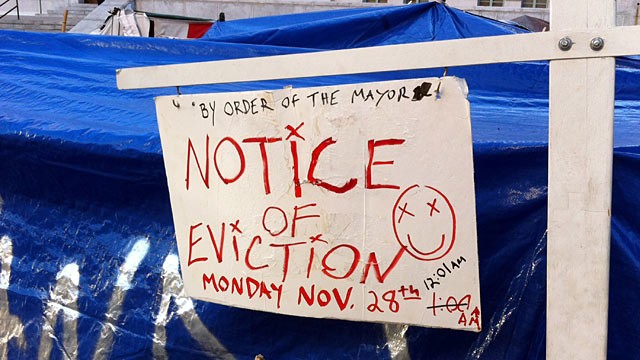 "BY ORDER OF THE MAYOR"
NOTICE
OF
EVICTION
12:01 AM
MONDAY NOV. 28th 1:00
AM